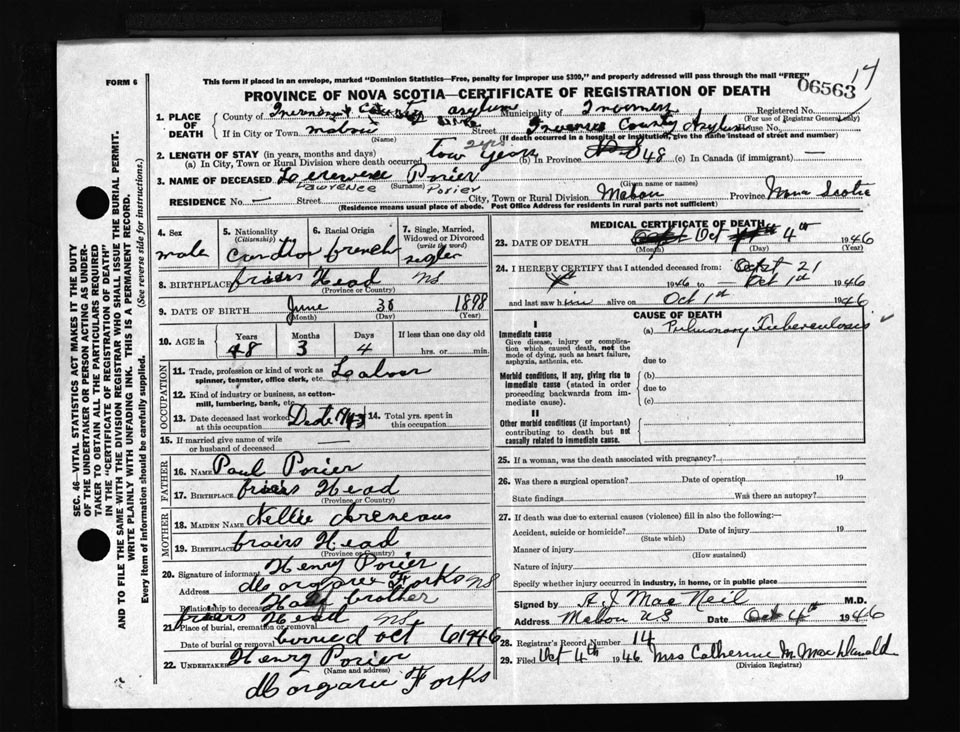 17
FORM 6
This form if placed in an envelope, marked "Dominion Statistics—Free, penalty for improper use $300," and properly addressed will pass through the mail "FREE"
06563
PROVINCE OF NOVA SCOTIA—CERTIFICATE OF REGISTRATION OF DEATH
1. PLACE OF DEATH
County of Inverness County asylum Municipality of Inverness Registered No.
(For use of Registrar General only)
If in City or Town mabou Street Inverness County Asylum House No.
(Name) (If death occurred in a hospital or institution, give the name instead of street and number)
2 yrs
2. LENGTH OF STAY (in years, months and days)
(a) In City, Town or Rural Division where death occurred tow years (b) In Province 48 (c) In Canada (if immigrant) —
3. NAME OF DECEASED Porier
Lawrence (Surname) Porier (Given name or names)
RESIDENCE No. — Street City, Town or Rural Division Mabou Province Nova Scotia
(Residence means usual place of abode. Post Office Address for residents in rural parts not sufficient)
4. Sex
male
5. Nationality
(Citizenship)
6. Racial Origin
french
7. Single, Married, Widowed or Divorced
(write the word)
8. BIRTHPLACE friars Head ns
(Province or Country)
9. DATE OF BIRTH June 30 1898
(Month) (Day) (Year)
10. AGE in
Years Months Days If less than one day old
48 3 4 hrs. or min.
OCCUPATION
11. Trade, profession or kind of work as spinner, teamster, office clerk, etc. Labour
12. Kind of industry or business, as cotton-mill, lumbering, bank, etc.
13. Date deceased last worked at this occupation 1943
14. Total yrs. spent in this occupation
15. If married give name of wife or husband of deceased
FATHER
16. NAME Paul Porier
17. BIRTHPLACE friars Head
(Province or Country)
MOTHER
18. MAIDEN NAME Nellie
19. BIRTHPLACE friars Head
(Province or Country)
20. Signature of informant Henry Porier
Address Margaree Forks NS
Relationship to deceased Half brother
friars Head ns
21. Place of burial, cremation or removal
Date of burial or removal burried oct 6 1946
22. UNDERTAKER Henry Porier
(Name and address)
Margaree Forks
MEDICAL CERTIFICATE OF DEATH
23. DATE OF DEATH Oct 4th 1946
(Month) (Day) (Year)
24. I HEREBY CERTIFY that I attended deceased from: Sept 21
1946 to Oct 1st 1946
and last saw him alive on Oct 1st 1946
CAUSE OF DEATH
I
Immediate cause
Give disease, injury or complication which caused death, not the mode of dying, such as heart failure, asphyxia, asthenia, etc.
(a) Pulmonary Tuberculosis
due to
Morbid conditions, if any, giving rise to immediate cause (stated in order proceeding backwards from immediate cause).
(b)
due to
(c)
II
Other morbid conditions (if important) contributing to death but not causally related to immediate cause.
25. If a woman, was the death associated with pregnancy?
26. Was there a surgical operation? Date of operation 19
State findings Was there an autopsy?
27. If death was due to external causes (violence) fill in also the following:—
Accident, suicide or homicide? Date of injury 19
(State which)
Manner of injury
(How sustained)
Nature of injury
Specify whether injury occurred in industry, in home, or in public place
Signed by A J MacNeil M.D.
Address Mabou NS Date Oct 4th 1946
28. Registrar's Record Number 14
29. Filed Oct 4th 1946 Mrs Catherine M. MacDonald
(Division Registrar)
SEC. 46—VITAL STATISTICS ACT MAKES IT THE DUTY
OF THE UNDERTAKER OR PERSON ACTING AS UNDERTAKER TO OBTAIN ALL THE PARTICULARS REQUIRED
IN THE "CERTIFICATE OF REGISTRATION OF DEATH"
AND TO FILE THE SAME WITH THE DIVISION REGISTRAR WHO SHALL ISSUE THE BURIAL PERMIT.
WRITE PLAINLY WITH UNFADING INK. THIS IS A PERMANENT RECORD.
Every item of information should be carefully supplied. (See reverse side for instructions.)